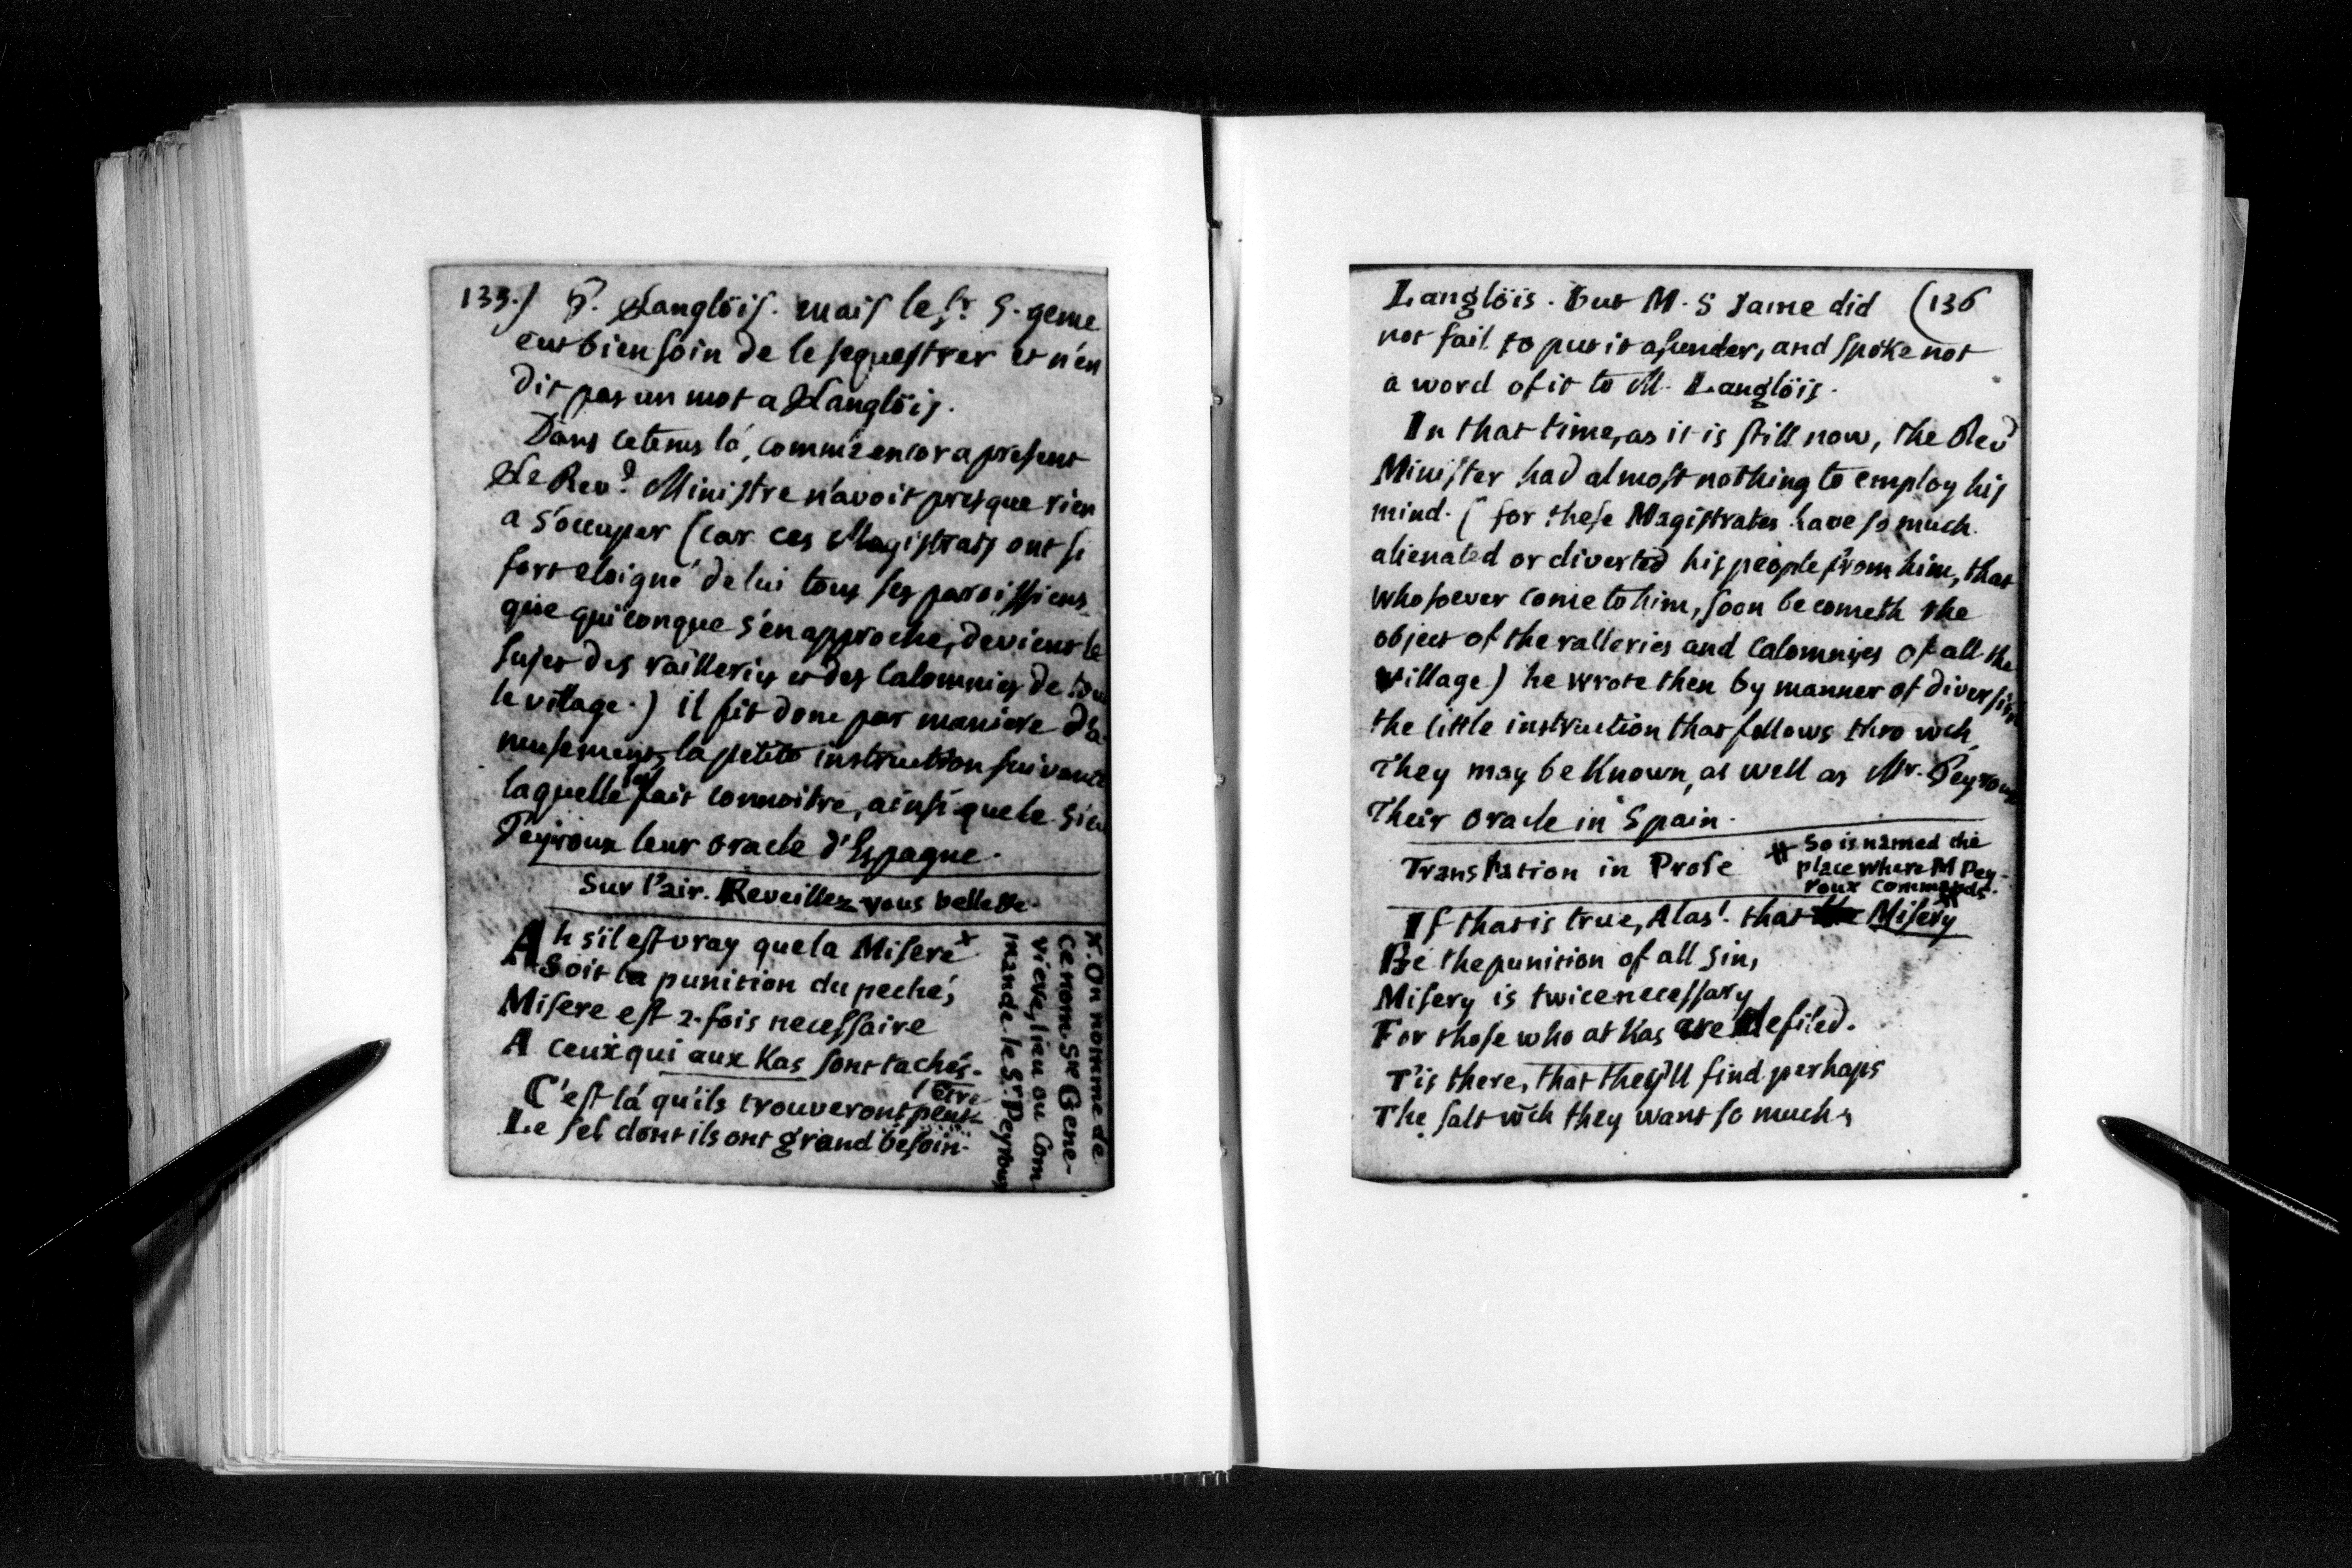 135.) P. Langlöis. mais le Sr. S. geme
eut bien soin de le sequestrer et n'en
dit pas un mot a Langlöis.
Dans cetems là, comme encor a present
Le Revd. Ministre n'avoit presque rien
a s'occuper (car ces Magistrats ont si
fort eloigné de lui tous ses paroissiens
que quiconque s'en approche, devient le
sujet des railleries et des Calomnies de tou
le village.) il fit donc par maniere d'a
musement, la petite instruction suivante
laquelle les fait connoitre, ainsi que le Sieu
Peyroux leur oracle d'Espagne.
Sur l'air. Reveillez-vous belle
Ah s'il est vray que la Misere x
Soit la punition du peché,
Misere est 2. fois necessaire
A ceux qui aux Kas sont tachés.
C'est là qu'ils trouveront peut (être
Le sel dont ils ont grand besoin.
x. On nomme de
ce nom Ste Gene-
vieve, lieu ou Com
mande le Sr Peyroux
Langlöis. but M. S Jame did (136
not fail to put it asunder, and spoke not
a word of it to M. Langlöis.
In that time, as it is still now, the Revd
Minister had almost nothing to employ his
mind. ( for these Magistrates have so much
alienated or diverted his people from him, that
whosoever come to him, soon becometh the
object of the ralleries and Calomnies of all the
village) he wrote then by manner of diversion
the little instruction that follows thro wch
They may be Known, as well as Mr. Peyroux
Their oracle in Spain.
Translation in Prose
# So is named the
place where M Pey-
roux commands.
If that is true, Alas! that Misery #
Be the punition of all sin,
Misery is twice necessary
For those who at Kas are defiled.
T'is there, that they'll find perhaps
The salt wch they want so much,